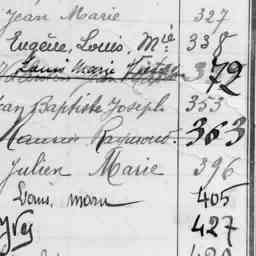 Jean Marie 327
Eugène, Louis, Mie 338
Louis Marie 372
Jean Baptiste Joseph 353
Maurice Raymond. 363
Julien Marie 396
Louis, marie 405
Yves 427